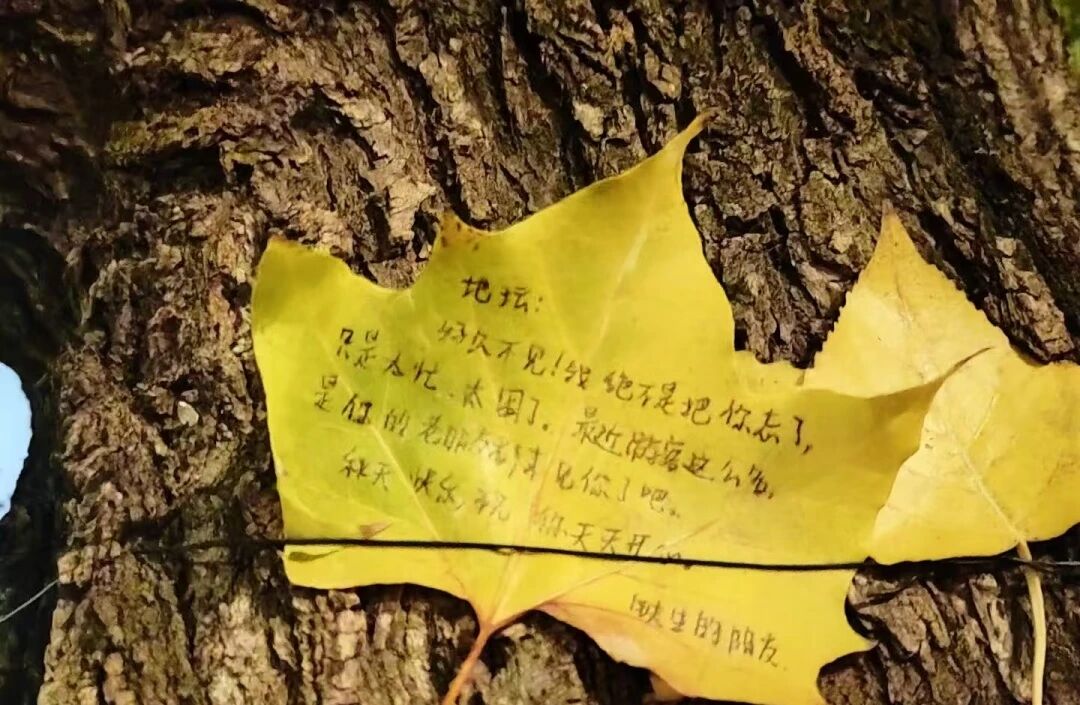 地坛:
好久不见!我绝不是把你忘了,
只是太忙、太困了。最近游客这么多,
是你的老朋友们来见你了吧。
秋天快乐,祝你天天开心
铁生的朋友